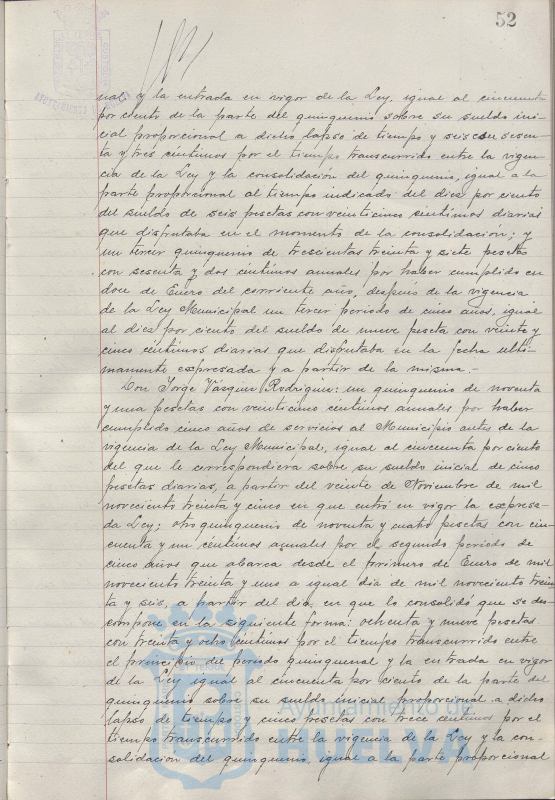 52
nal, y la entrada en vigor de la Ley, igual al cincuenta
por ciento de la parte del quinquenio sobre su sueldo ini-
cial proporcional a dicho lapso de tiempo y seis con sesen-
ta y tres céntimos por el tiempo transcurrido entre la vigen-
cia de la Ley y la consolidación del quinquenio, igual a la
parte proporcional al tiempo indicado del diez por ciento
del sueldo de seis pesetas con veinticinco céntimos diarias
que disfrutaba en el momento de la consolidación; y
un tercer quinquenio de trescientas treinta y siete pesetas
con sesenta y dos céntimos anuales por haber cumplido en
doce de Enero del corriente año, después de la vigencia
de la Ley Municipal un tercer periodo de cinco años, igual
al diez por ciento del sueldo de nueve peseta con veinte y
cinco céntimos diarias que disfrutaba en la fecha ulti-
mamente expresada y a partir de la misma.-
Don Jorge Vásquez Rodriguez: un quinquenio de noventa
y una pesetas con veinticinco céntimos anuales por haber
cumplido cinco años de servicios al Municipio antes de la
vigencia de la Ley Municipal, igual al cincuenta por ciento
del que le correspondiera sobre su sueldo inicial de cinco
pesetas diarias, a partir del veinte de Noviembre de mil
noveciento treinta y cinco en que entró en vigor la expresa-
da Ley; otro quinquenio de noventa y cuatro pesetas con cin-
cuenta y un céntimos anuales por el segundo periodo de
cinco años que abarca desde el primero de Enero de mil
noveciento treinta y uno a igual dia de mil noveciento trein-
ta y seis, a partir del dia en que lo consolidó que se des-
compone en la siguiente forma: ochenta y nueve pesetas
con treinta y ocho céntimos por el tiempo transcurrido entre
el principio del periodo quinquenal y la entrada en vigor
de la Ley igual al cincuenta por ciento de la parte del
quinquenio sobre su sueldo inicial proporcional a dicho
lapso de tiempo y cinco pesetas con trece céntimos por el
tiempo transcurrido entre la vigencia de la Ley y la con-
solidación del quinquenio, igual a la parte proporcional
Ayuntamiento de
HUELVA